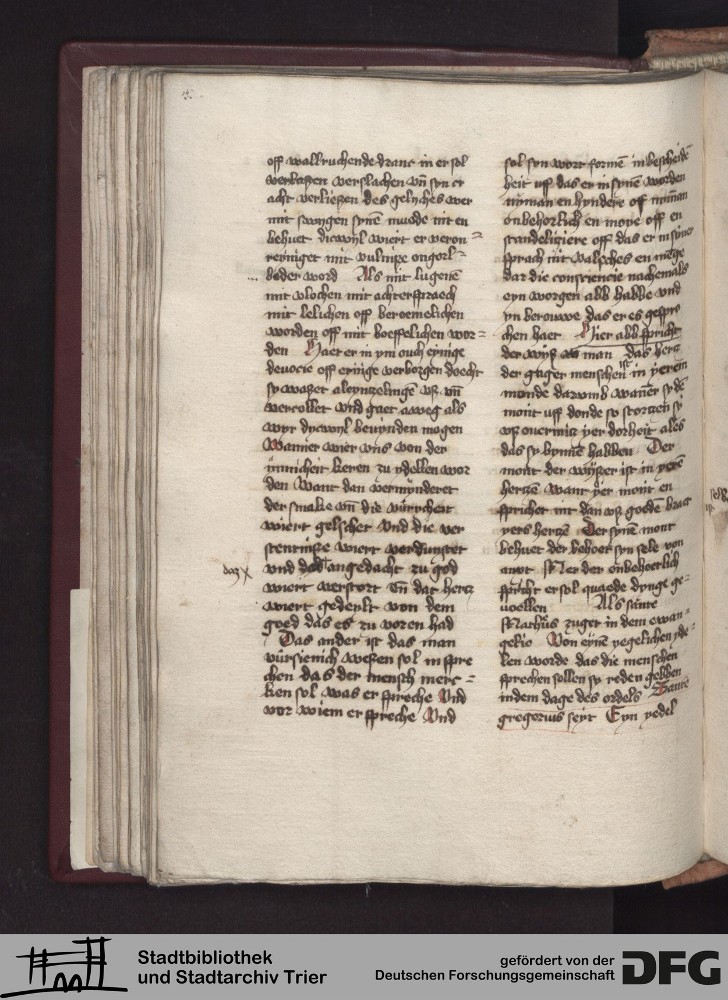 off wallruchende dranc in er sol
verlaʒen verslachen vn̄ syn er
acht verlieʒen des gelyches wer
mit swygen synē munde nit en
behuet dicwyl wiert er veron=
reyniget mit vulniʒe ongorl=
boder word Als mit lugenē
mit vlochen mit achterspraech
mit lelichen off beroemelichen
worden off mit boeffelichen wor=
den Haet er in ym ouch eynige
devocie off eynige verborgen doecht
sy waʒet aleynzelingē vʒ vn̄
vercollet vnd gaet aweg als
wyr dycwyl bevynden mogen
Wanner wier vns von der
ynnicheit keren zu ydellen wor
den Want dan vermynderet
der smake vn̄ die vuricheit
wiert gelschet Vnd die ver
stentniʒe wiert verdunstet
daz x
vnd angedacht zu god
wiert verstort Vn̄ dat hertz
wiert gedeylt von dem
goed das es zu voren had
Das ander ist das man
vursienich weʒen sol in spre
chen das der mensch merc=
ken sol was er spreche Vnd
vor wiem er spreche Vnd
sol syn wort formē in bescheidē
heit uff das er in synē worden
nyman en hyndere off nyman
onbehorlich en moye off en
scandeliziere off das er in syner
sprach nit valsches en menge
dar die consciencie nachemals
eyn worgen abb habbe vnd
yn berouwe das er es gespro
chen haet Hier abb spricht
der wyse man das hertz
der gager menschen ist in yerem
munde darumb wanner sy dē
mont uff donde so stortzen sy
vʒ overmitz yer dorheit ales
das sy bynnē habben Der
mont der wyser ist in yerē
hertzē Want yer mont en
sprichet nit dan vʒ goedē
yers hertzē Der synē mont
behuet der behoet syn sele von
anxt Mer der onbehoetlich
spricht er sol quaede dynge ge=
voellen Als sante
Matheus zuget in dem ewan=
gelio Von eynē yegelichen yde=
len worde das die menschen
sprechen sollen sy reden gebben
in dem dage des ordels Sante
gregorius seyt Eyn yedel
Stadtbibliothek
und Stadtarchiv Trier
gefördert von der
Deutschen Forschungsgemeinschaft
DFG